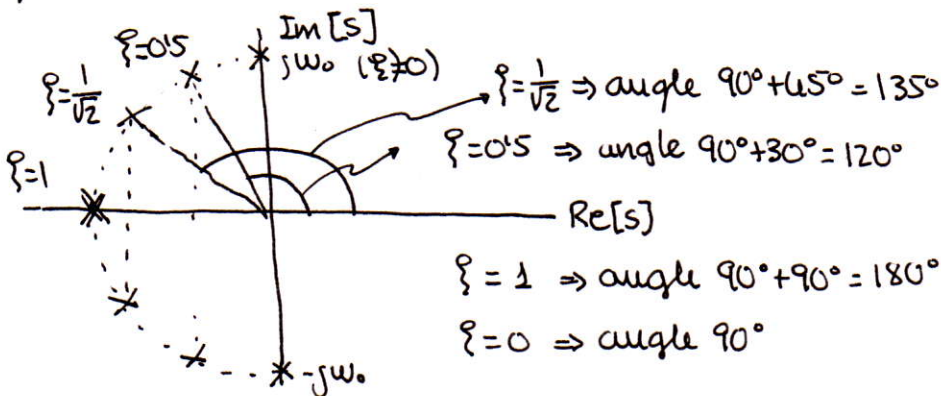 Im[s]
ξ=0'5
jω₀ (ξ≠0)
ξ=1/√2
ξ=1/√2 ⇒ angle 90°+45°=135°
ξ=0'5 ⇒ angle 90°+30°=120°
ξ=1
Re[s]
ξ=1 ⇒ angle 90°+90°=180°
ξ=0 ⇒ angle 90°
-jω₀